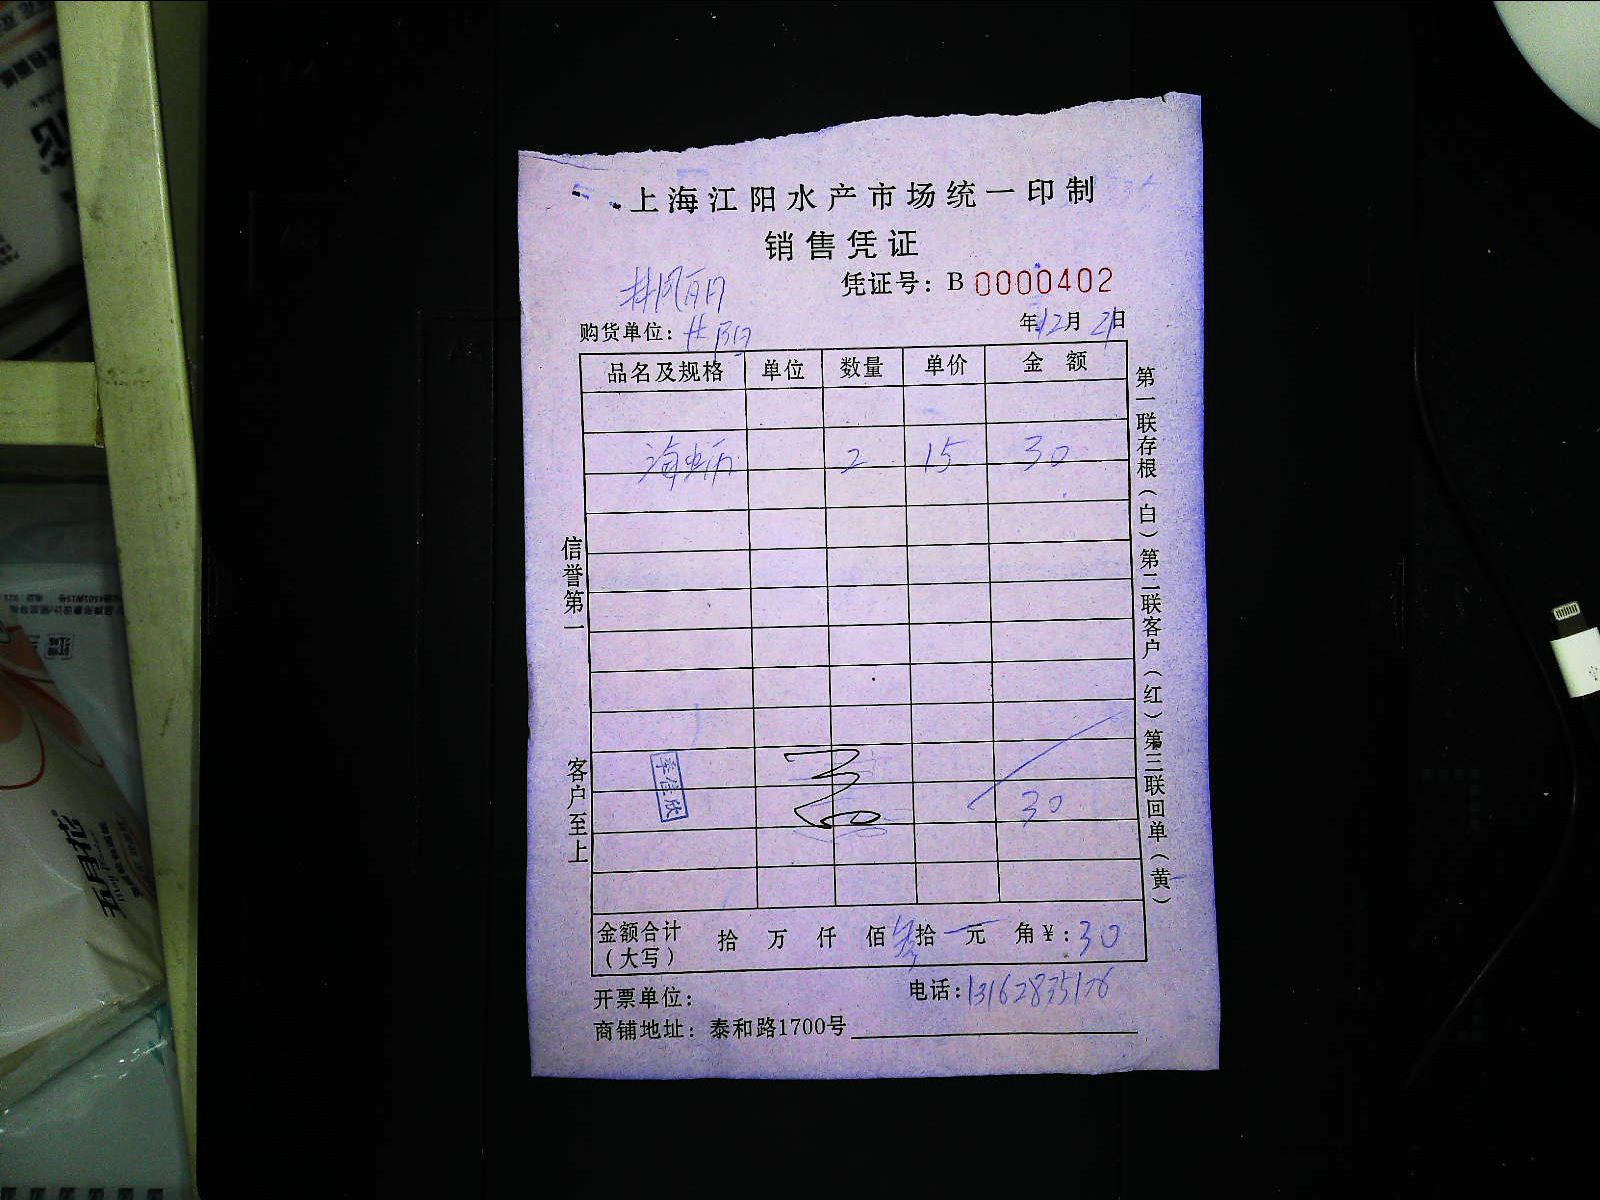 上海江阳水产市场统一印制
销售凭证
凭证号：B 0000402
购货单位：
年12月21日
品名及规格 单位 数量 单价 金额
海蛎 2 15 30
30
季佳欣
金额合计（大写） 拾 万 仟 佰 叁拾 元 角 ¥：30
开票单位：
电话：
商铺地址：泰和路1700号
信誉第一
客户至上
第一联存根（白）第二联客户（红）第三联回单（黄）
五月花